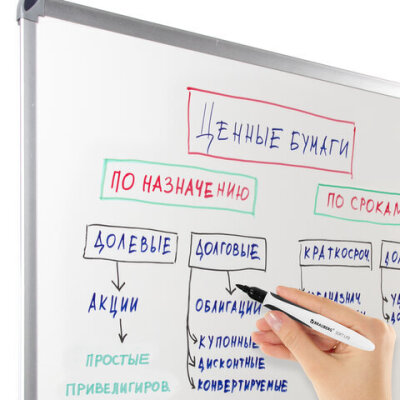 ЦЕННЫЕ БУМАГИ
ПО НАЗНАЧЕНИЮ
ПО СРОКАМ
ДОЛЕВЫЕ
ДОЛГОВЫЕ
КРАТКОСРОЧ
АКЦИИ
ОБЛИГАЦИИ
ПРОСТЫЕ
ПРИВЕЛИГИРОВ.
КУПОННЫЕ
ДИСКОНТНЫЕ
КОНВЕРТИРУЕМЫЕ
BRAUBERG